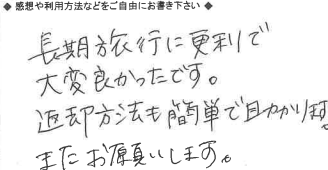 ◆ 感想や利用方法などをご自由にお書き下さい ◆
長期旅行に便利で
大変良かったです。
返却方法も簡単で助かります。
またお願いします。